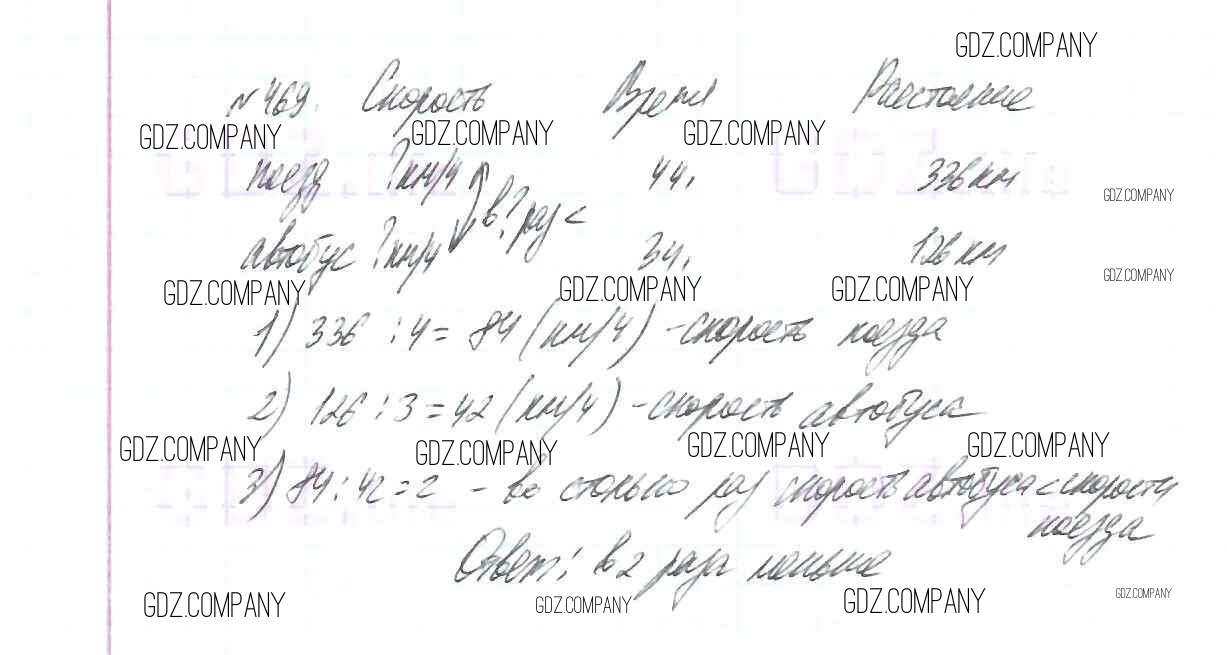 GDZ.COMPANY
№469. Скорость Время Расстояние
GDZ.COMPANY GDZ.COMPANY GDZ.COMPANY
поезд ?км/ч 4ч. 336 км
в ? раз <
GDZ.COMPANY
автобус ?км/ч 3ч. 126 км
GDZ.COMPANY GDZ.COMPANY GDZ.COMPANY GDZ.COMPANY
1) 336 : 4 = 84 (км/ч) - скорость поезда
2) 126 : 3 = 42 (км/ч) - скорость автобуса
GDZ.COMPANY GDZ.COMPANY GDZ.COMPANY GDZ.COMPANY
3) 84 : 42 = 2 - во столько раз скорость автобуса < скорости
поезда
Ответ: в 2 раза меньше
GDZ.COMPANY GDZ.COMPANY GDZ.COMPANY GDZ.COMPANY